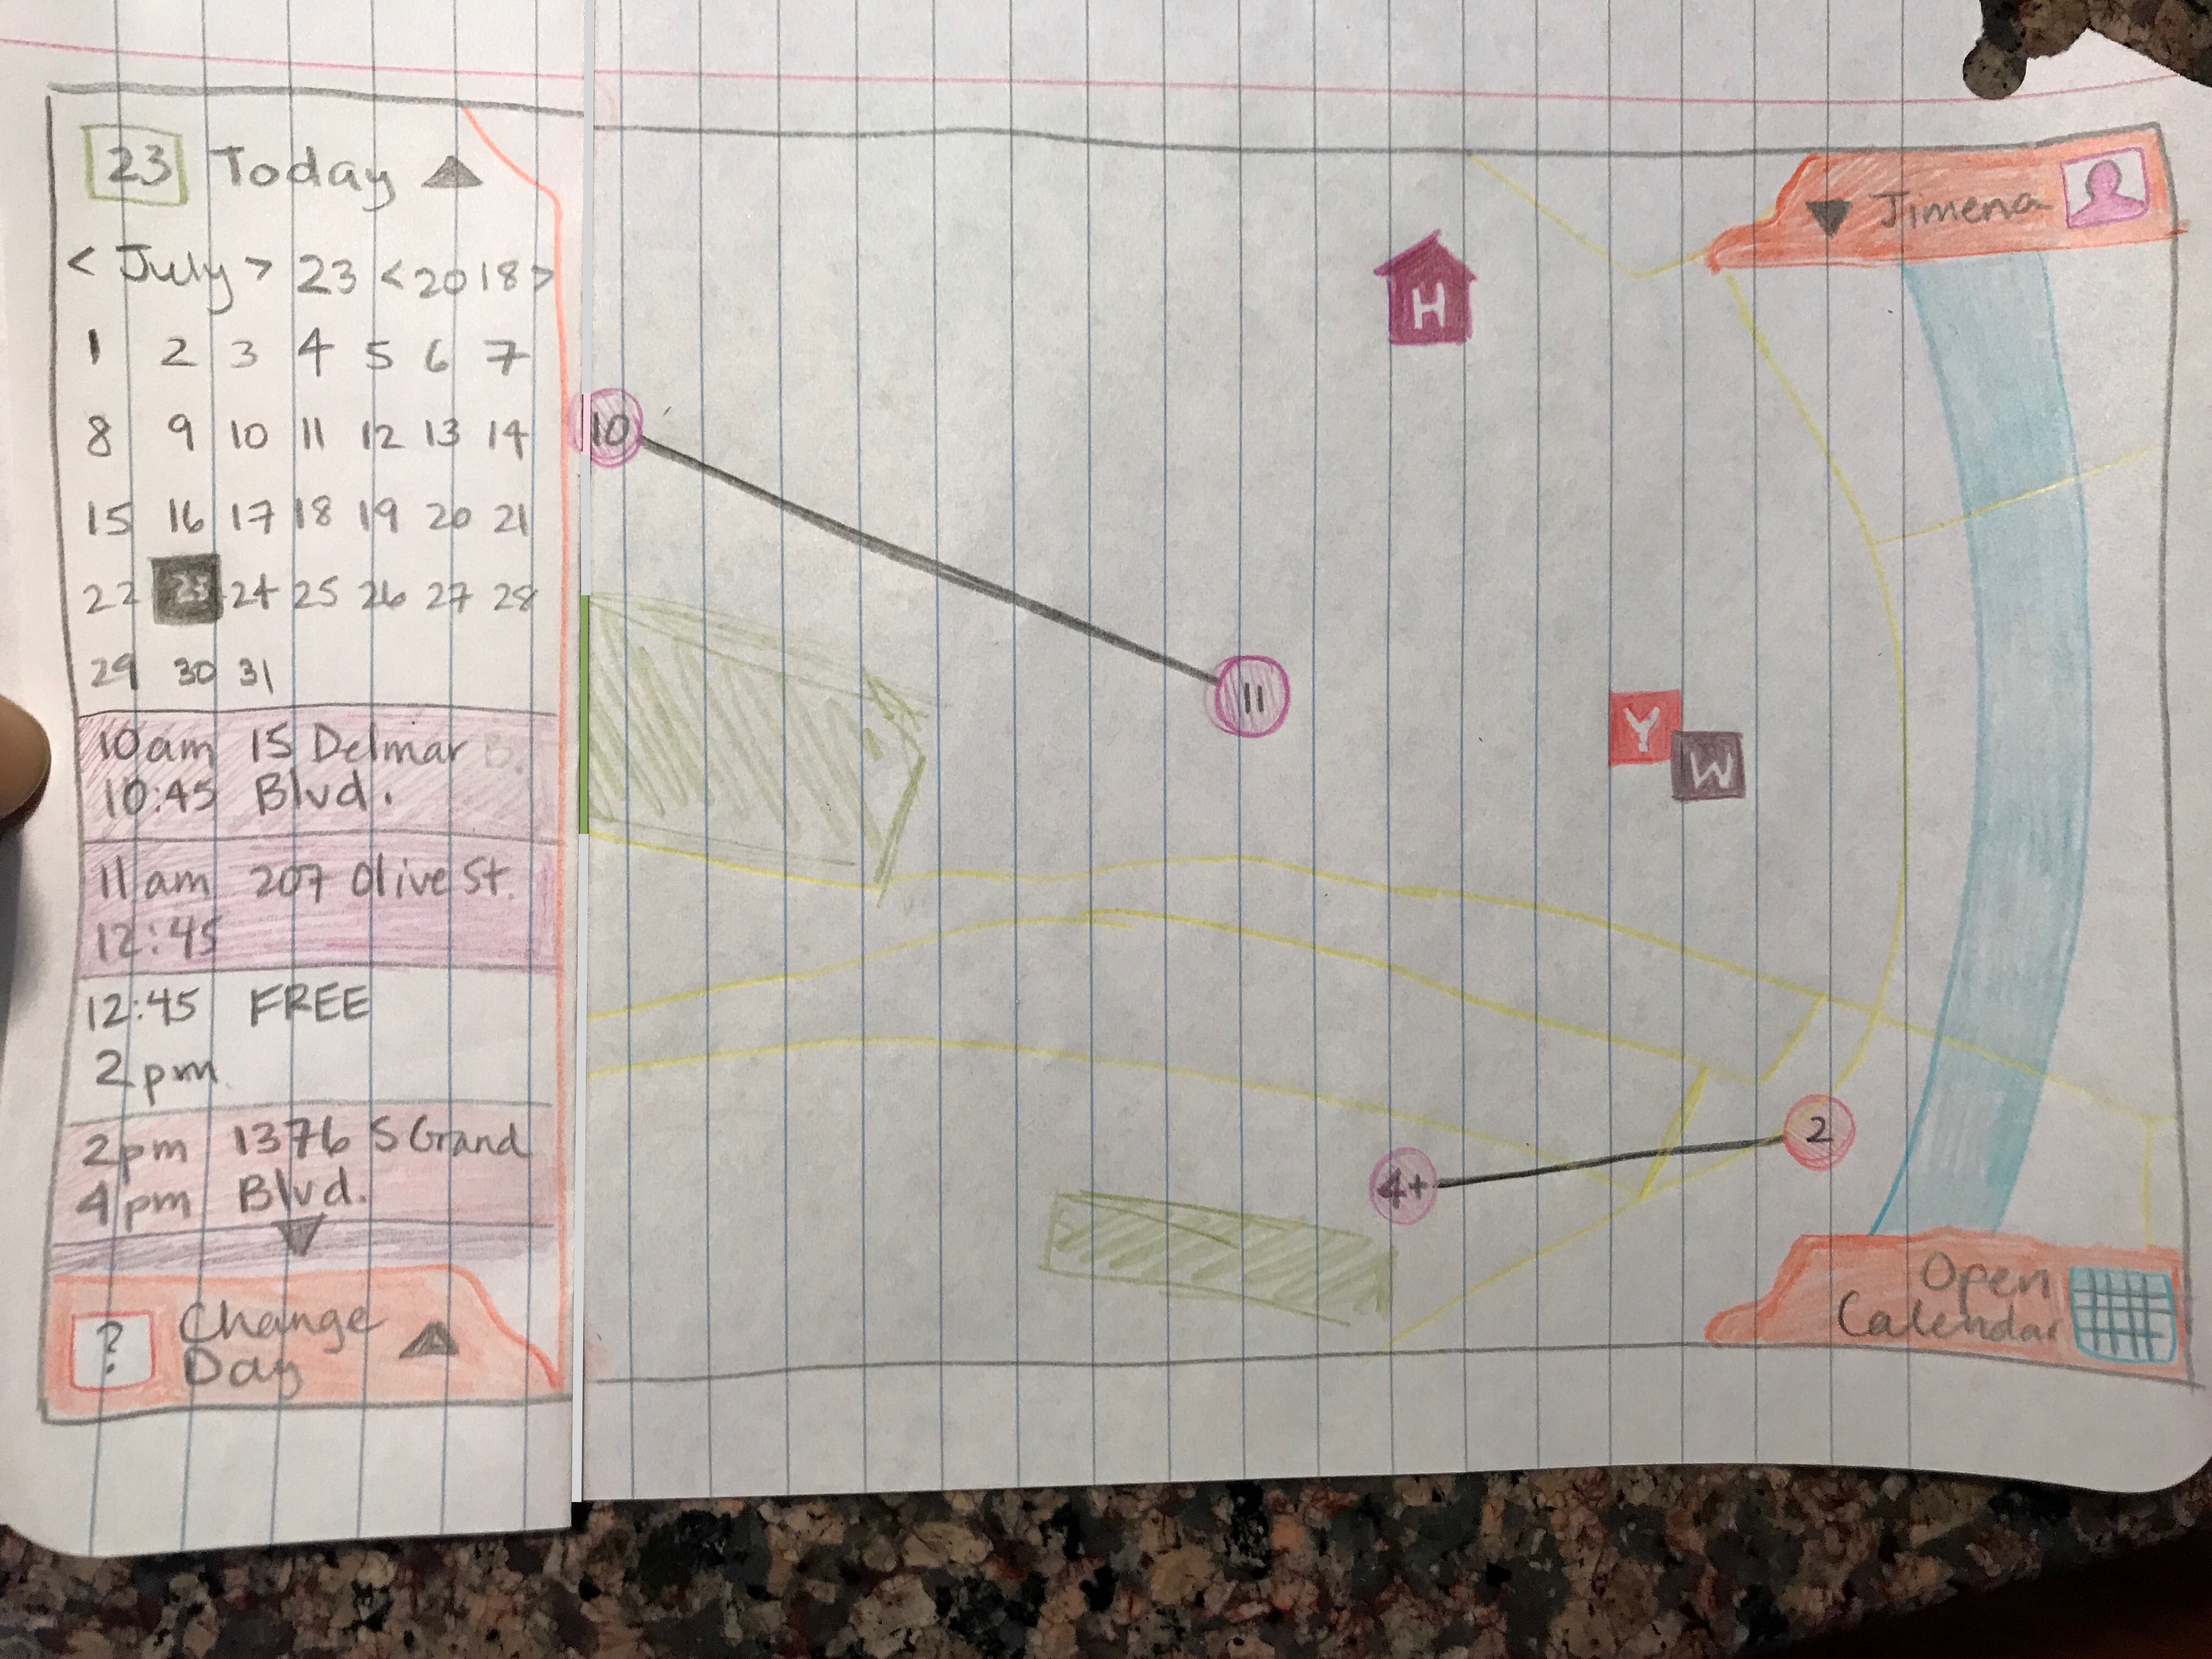 23 Today
< July > 23 < 2018 >
1 2 3 4 5 6 7
8 9 10 11 12 13 14
15 16 17 18 19 20 21
22 23 24 25 26 27 28
29 30 31
10am 15 Delmar B.
10:45 Blvd.
11am 207 Olive St.
12:45
12:45 FREE
2pm
2pm 1376 S Grand
4pm Blvd.
? Change
Day
Jimena
H
10
11
Y
W
2
4+
Open
Calendar